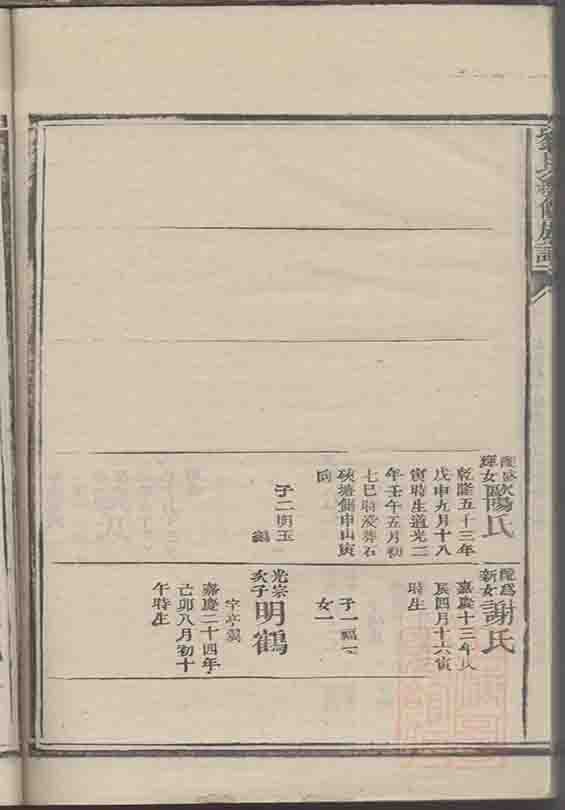 氏
配
輝女歐陽氏
乾隆五十三年
戊申九月十八
寅時生道光二
年壬午五月初
七巳時沒葬石
硤塘側申山寅
向
子二明玉
鶴
配為
新女謝氏
嘉慶十三年戊
辰四月十六寅
時生
子一
女一
光宗
次子明鶴
字亭
嘉慶二十四年
己卯八月初十
午時生